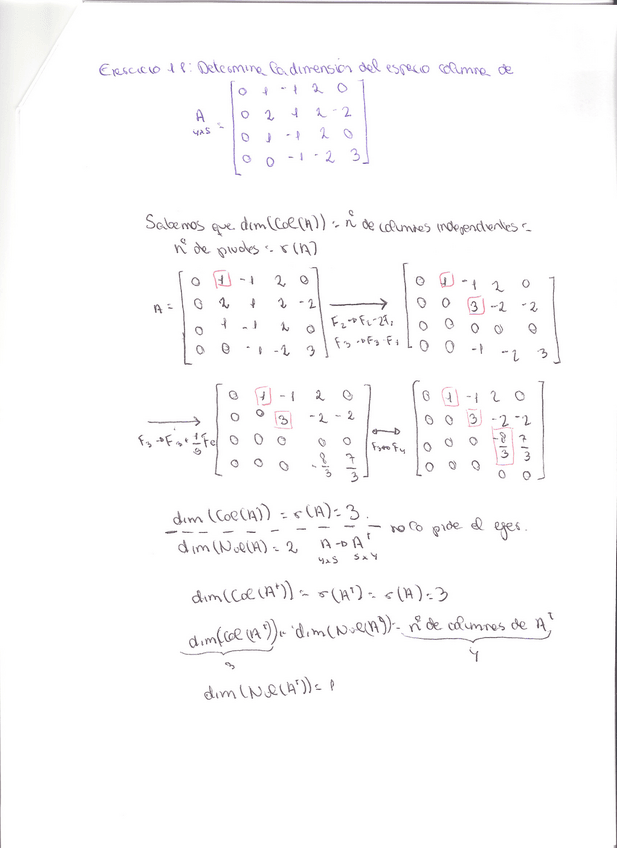 Ejercicio 18: Determina la dimensión del espacio columna de
A 4x5 = [ 0 1 -1 2 0
0 2 1 2 -2
0 1 -1 2 0
0 0 -1 -2 3 ]
Sabemos que dim(Col(A)) = nº de columnas independientes =
nº de pivotes = r(A)
A = [ 0 1 -1 2 0
0 2 1 2 -2
0 1 -1 2 0
0 0 -1 -2 3 ]
F2→F2-2F1
F3→F3-F1
[ 0 1 -1 2 0
0 0 3 -2 -2
0 0 0 0 0
0 0 -1 -2 3 ]
[ 0 1 -1 2 0
0 0 3 -2 -2
0 0 0 0 0
0 0 0 -8/3 7/3 ]
F3↔F4
[ 0 1 -1 2 0
0 0 3 -2 -2
0 0 0 -8/3 7/3
0 0 0 0 0 ]
dim(Col(A)) = r(A) = 3.
no lo pide el ejer.
dim(Nul(A)) = 2 A → Aᵀ
4x5 5x4
dim(Col(Aᵀ)) = r(Aᵀ) = r(A) = 3
dim(Col(Aᵀ)) + dim(Nul(Aᵀ)) = nº de columnas de Aᵀ
3 4
dim(Nul(Aᵀ)) = 1